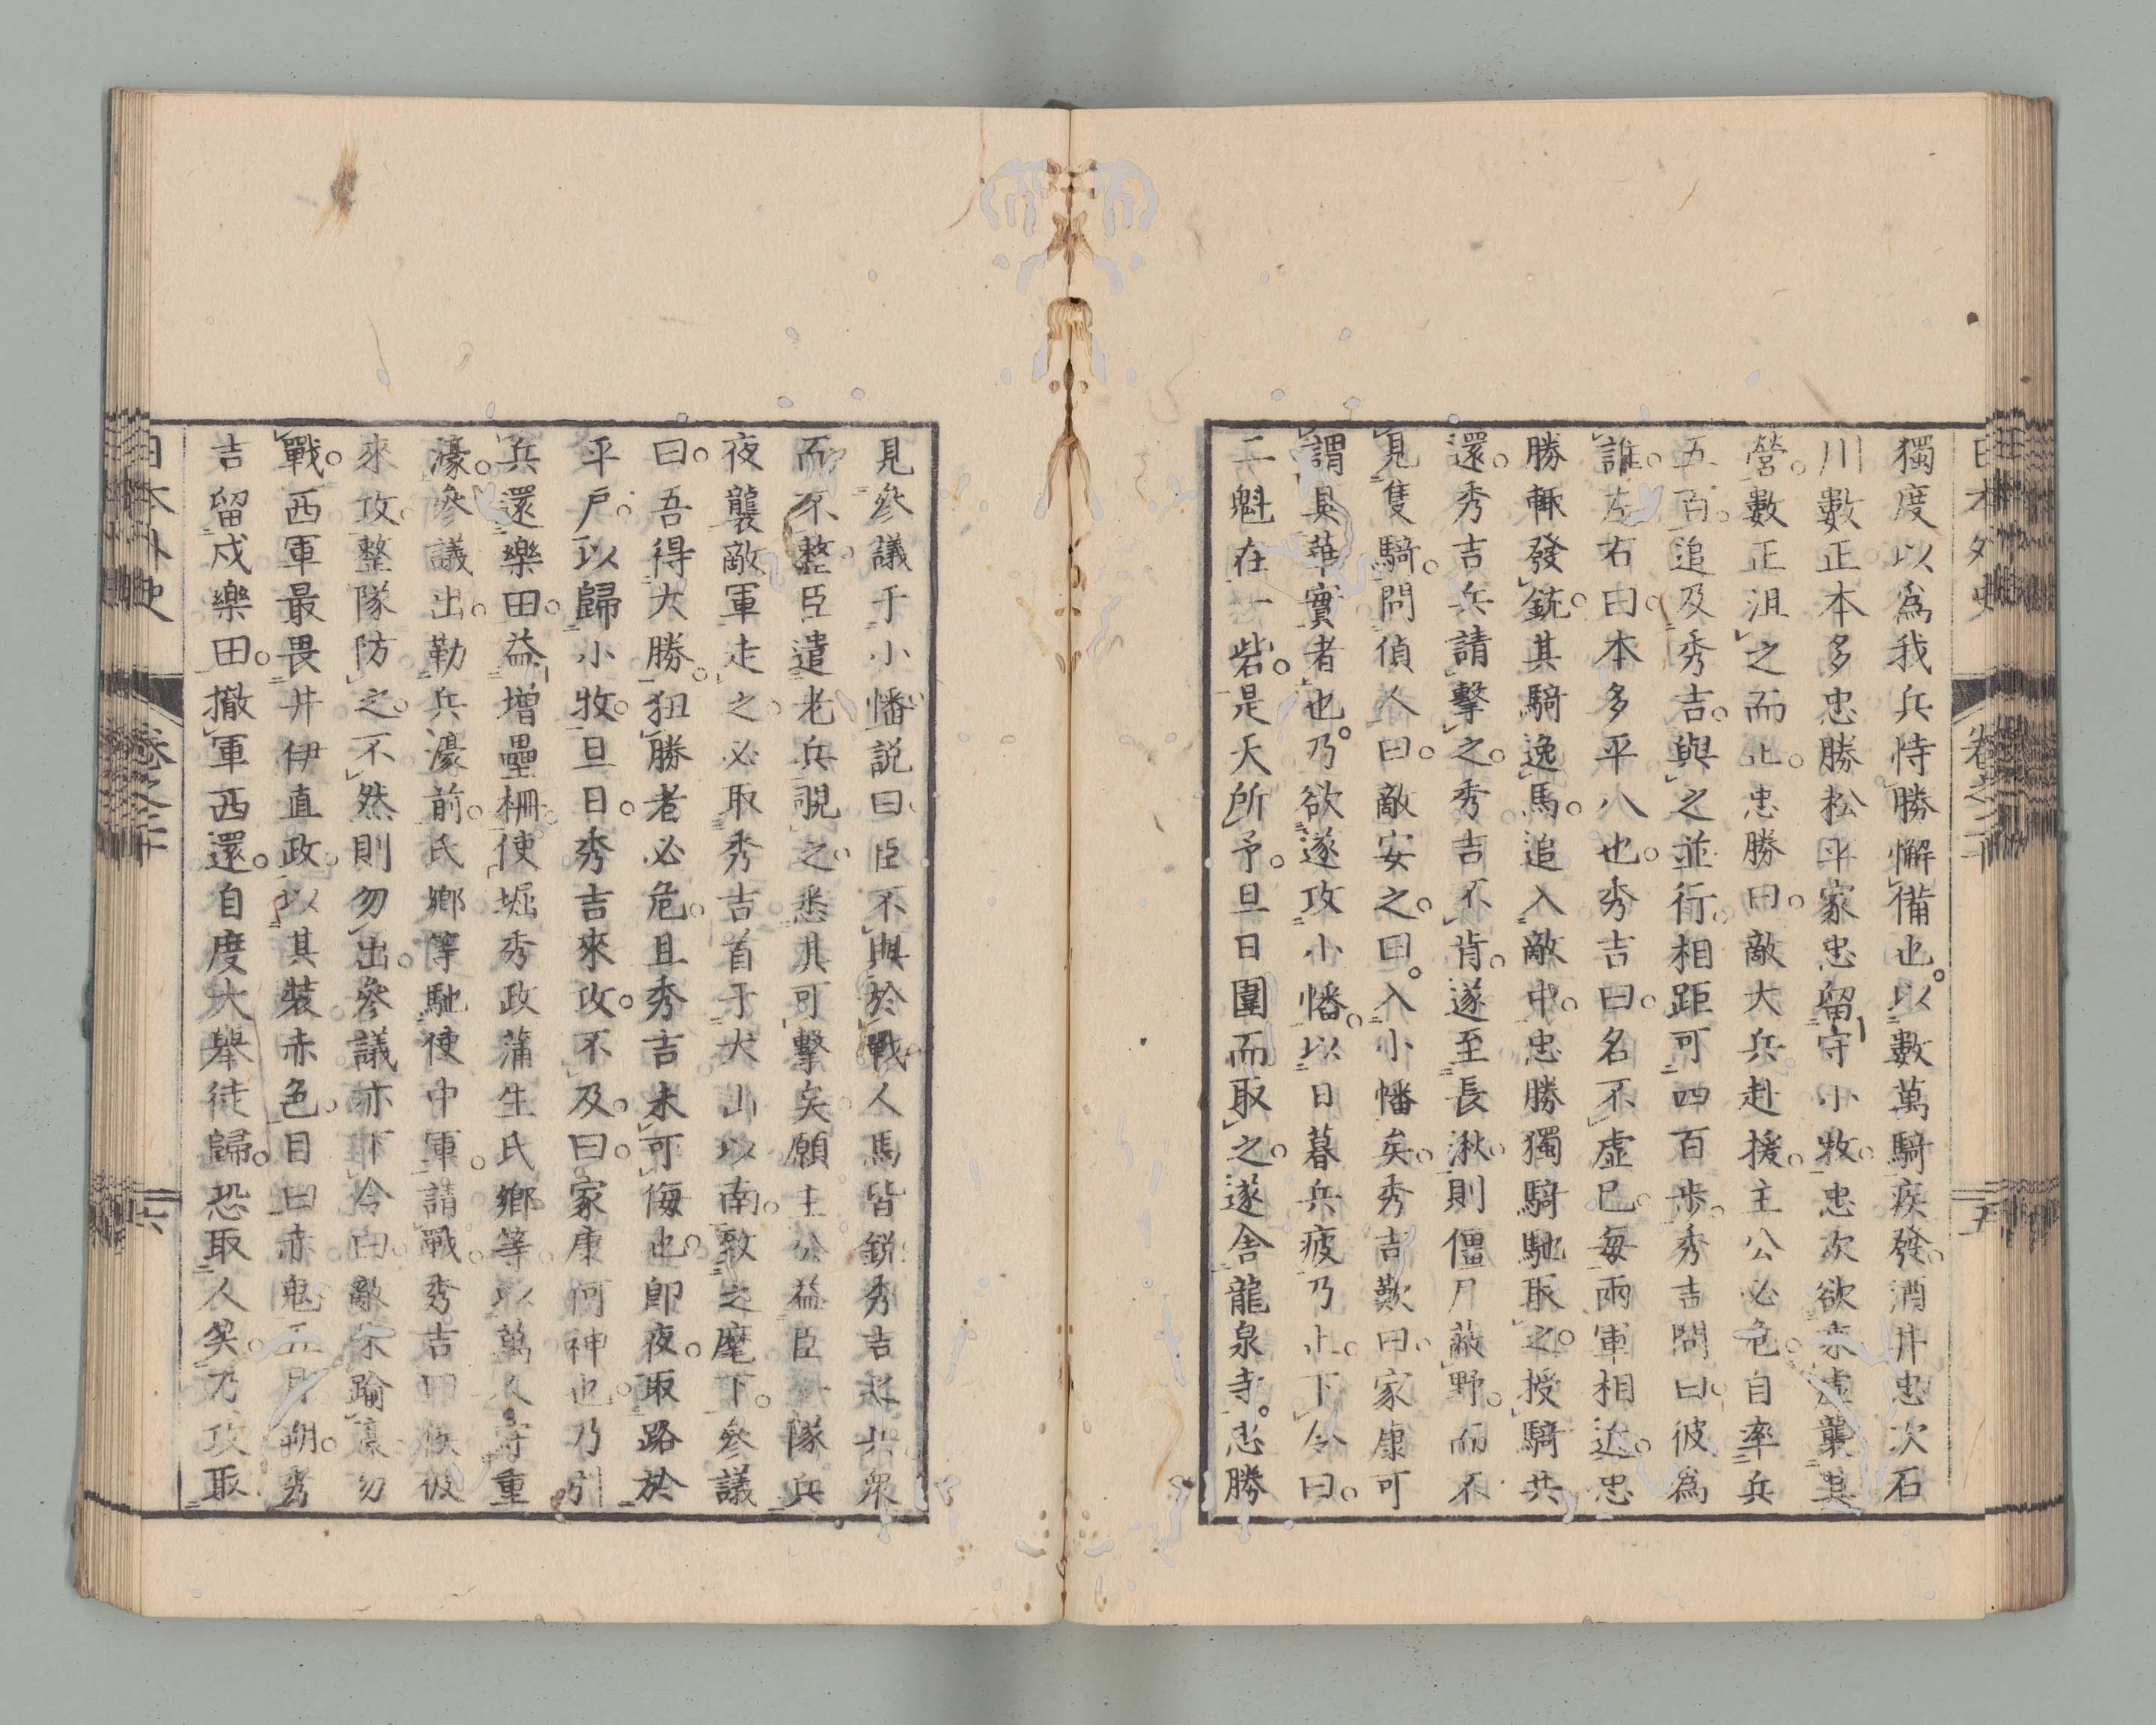 獨度以爲我兵恃勝懈備也。以數萬騎疾發。酒井忠次石
川數正本多忠勝松平家忠留守小牧。忠次欲乘虛襲其
營。數正沮之而止。忠勝曰。敵大兵赴援。主公必危。自率兵
五百。追及秀吉。與之並行。相距可四百步。秀吉問曰。彼爲
誰。左右曰。本多平八也。秀吉曰。名不虛已。每兩軍相近。忠
勝輒發銃。其騎逸馬。追入敵中。忠勝獨騎馳取之。授騎共
還。秀吉兵請擊之。秀吉不肯。遂至長湫。則僵尸蔽野。而不
見隻騎。問偵人。曰。敵安之。曰。入小幡矣。秀吉歎曰。家康可
謂具華實者也。乃欲遂攻小幡。以日暮兵疲乃止。下令曰。
二魁在一砦。是天所予。旦日圍而取之。遂舍龍泉寺。忠勝
見參議于小幡說曰。臣不與於戰。人馬皆銳。秀吉
而不整。臣遣老兵覘之。悉其可擊矣。願主公益臣一隊兵
夜襲敵軍。走之。必取秀吉首于犬山以南。致之麾下。參議
曰。吾得大勝。狃勝者必危。且秀吉未可侮也。卽夜取路於
平戶。以歸小牧。旦日。秀吉來攻。不及。曰。家康何神也。乃引
兵還樂田。益增壘柵。使堀秀政蒲生氏鄉等以萬人守重
濠。參議出。勒兵濠前。氏鄉等馳使中軍。請戰。秀吉曰。候彼
來攻。整隊防之。不然則勿出。參議亦下令曰。敵未踰濠。勿
戰。西軍最畏井伊直政。以其裝赤色。目曰赤鬼。五月朔。秀
吉留戍樂田。撤軍西還。自度大擧徒歸。恐取人笑。乃攻取
日本外史
卷之二十
五
日本外史
卷之二十
六